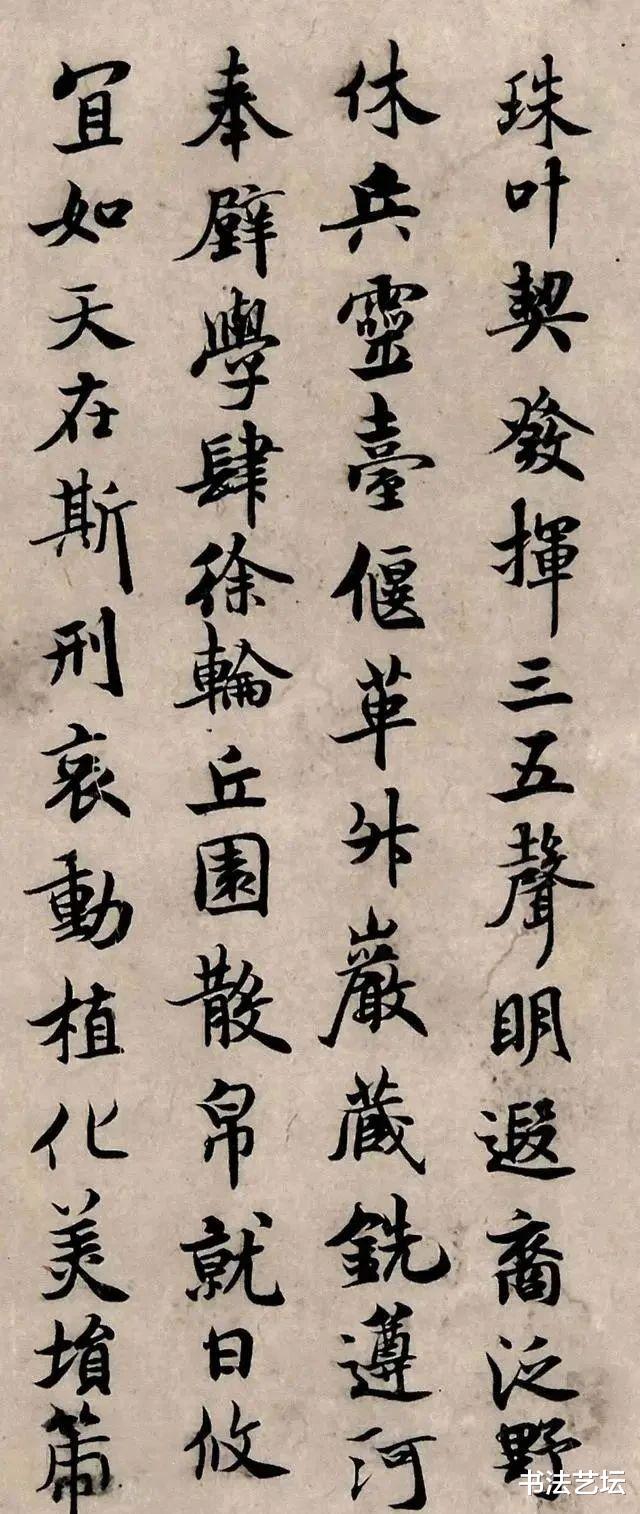 珠叶契發揮三五聲明遐裔泛野
休兵靈臺偃革升巖藏銑遵河
奉璧學肆徐輪丘園散帛就日攸
宜如天在斯刑動植化美塤
书法艺坛